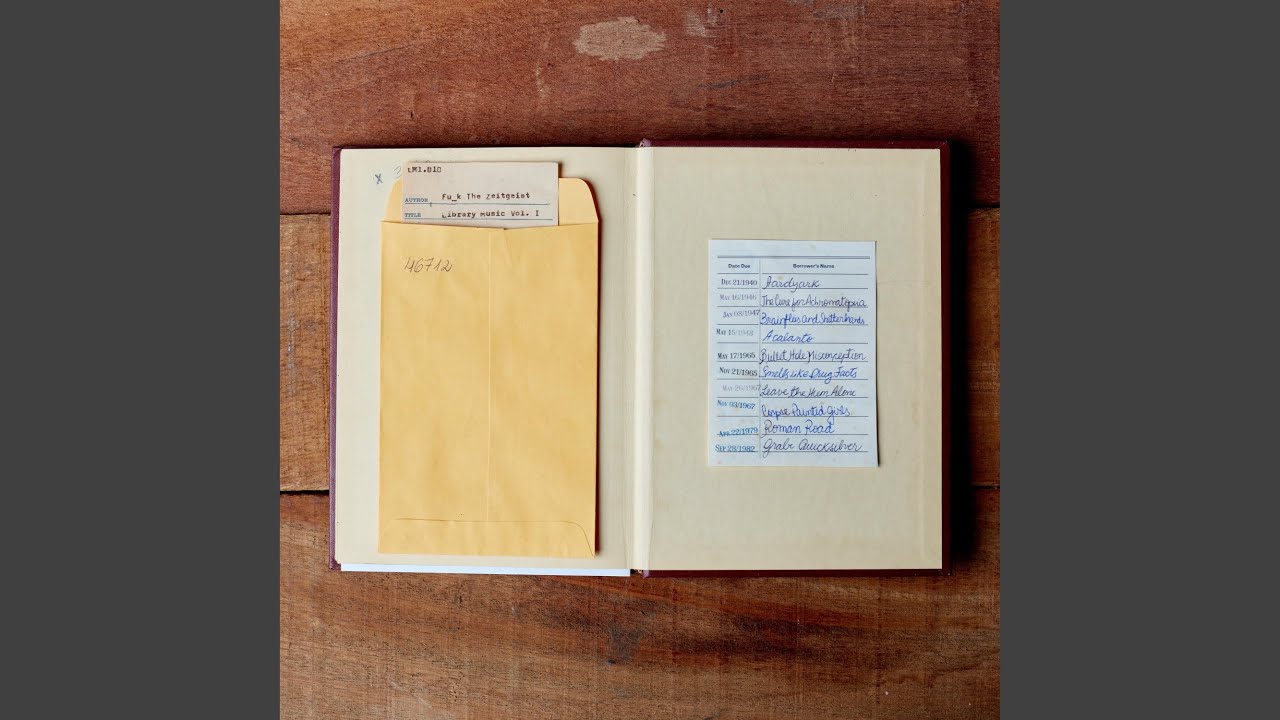 x
LM1.010
AUTHOR Fu_k The Zeitgeist
TITLE Library Music Vol. I
46712
Date Due Borrower's Name
DEC 21/1940 Aardvark
MAY 16/1946 The Cure for Achromatopsia
JAN 08/1947 Brainflies and
MAY 15/1948 Acalanto
MAY 17/1965 Bullet Hole Misconception
NOV 21/1965 Smells Like Drug Facts
MAY 26/1967 Leave the Hum Alone
NOV 03/1967 Corpse Painted Girls
APR 22/1979 Roman Road
SEP 28/1982 Grabe Quicksilver